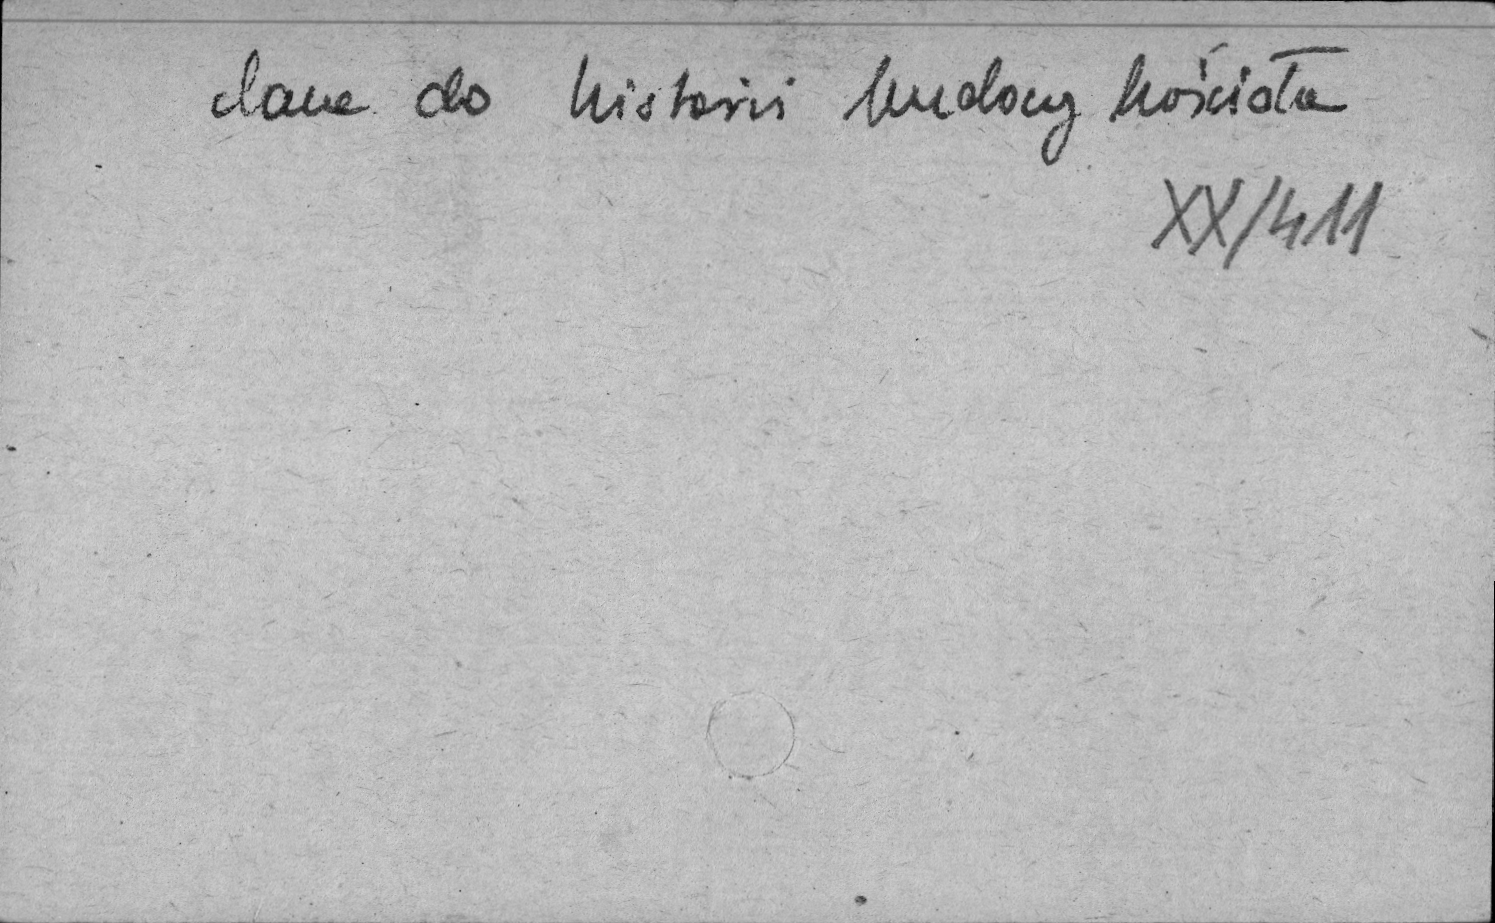 dane do historii budowy kościoła
XX/411